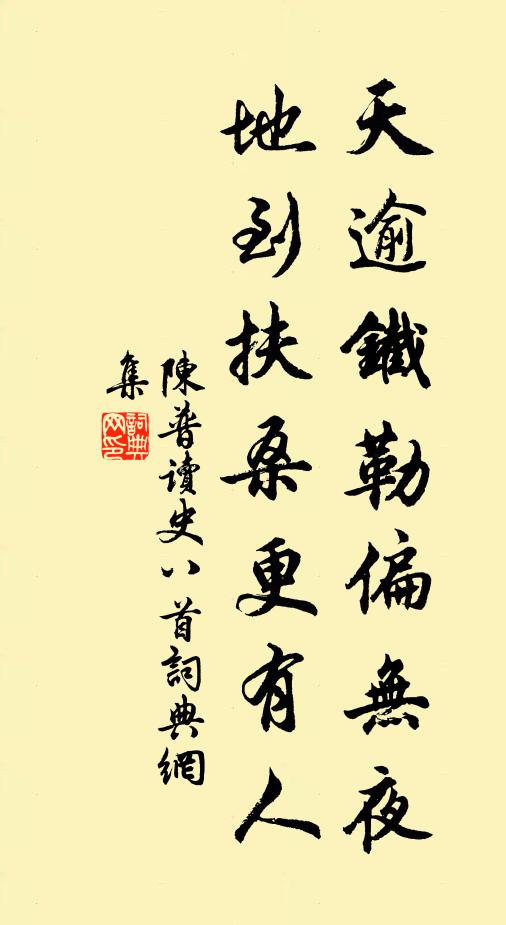 天逾鐵勒偏無夜
地到扶桑更有人
陳普讀史八首詞典網
集
詞典網印